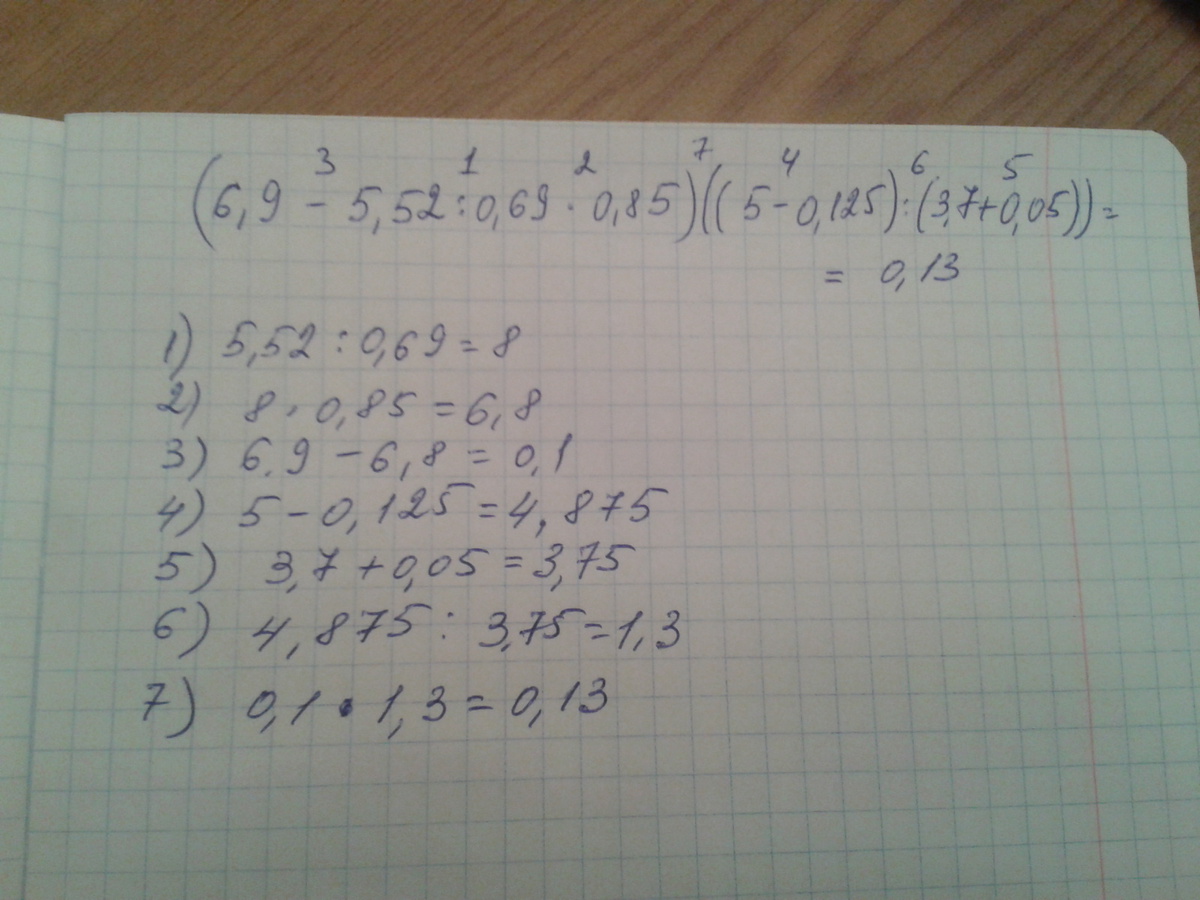 3 1 2 7 4 6 5
(6,9 - 5,52 : 0,69 · 0,85)((5 - 0,125) : (3,7 + 0,05)) =
= 0,13
1) 5,52 : 0,69 = 8
2) 8 · 0,85 = 6,8
3) 6.9 - 6,8 = 0,1
4) 5 - 0,125 = 4,875
5) 3,7 + 0,05 = 3,75
6) 4,875 : 3,75 = 1,3
7) 0,1 · 1,3 = 0,13